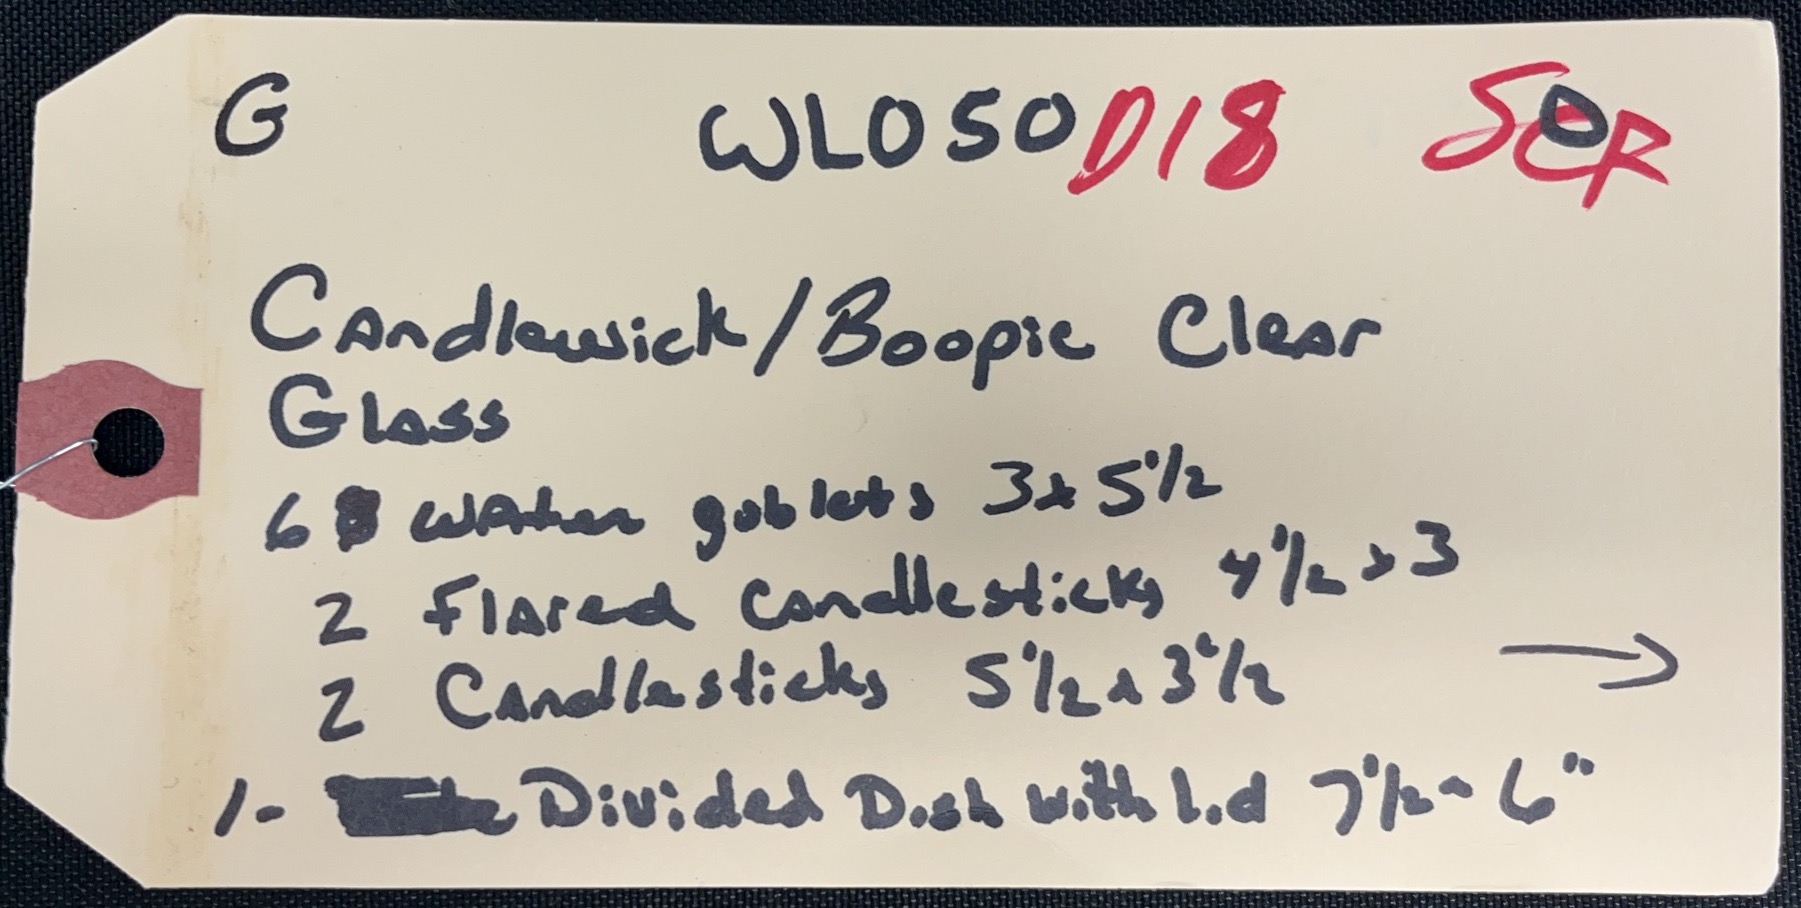 G WL050 D18
Candlewick/Boopie Clear
Glass
6 water goblets 3 x 5 1/2
2 Flared Candlesticks 4 1/2 x 3
2 Candlesticks 5 1/2 x 3 1/2
→
1- Divided Dish with Lid 7 1/2 - 6"